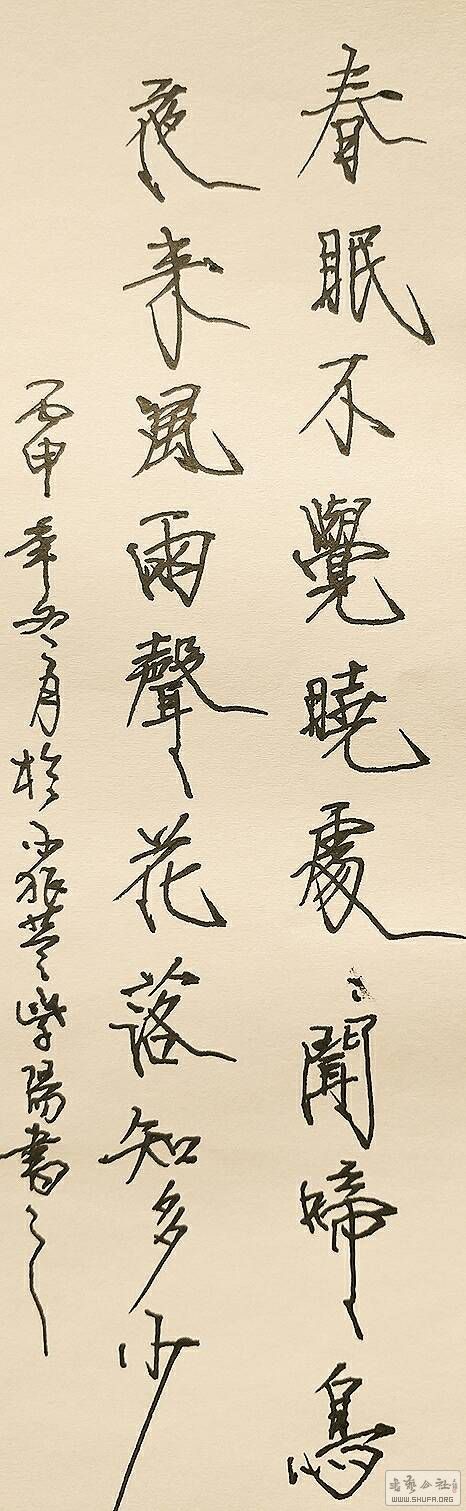 春眠不覺曉處〻聞啼鳥
夜来風雨聲花落知多少
丙申年冬月於小學陽書之
书艺公社
WWW.SHUFA.ORG